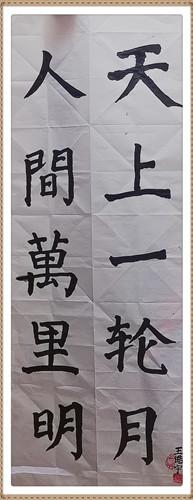 天上一轮月
人間萬里明